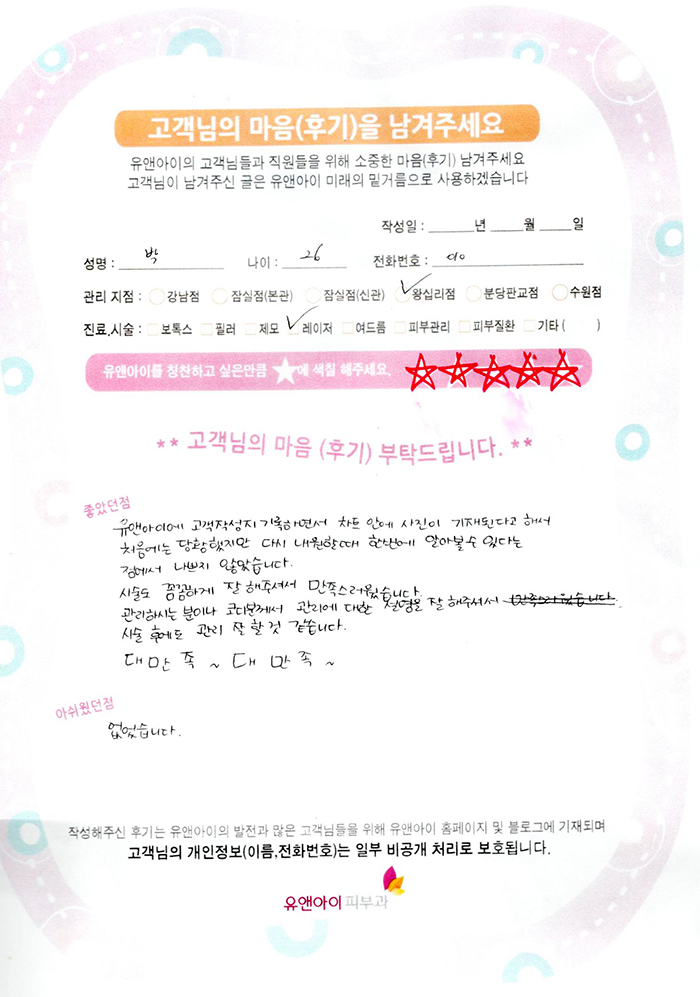 고객님의 마음(후기)을 남겨주세요
유앤아이의 고객님들과 직원들을 위해 소중한 마음(후기) 남겨주세요
고객님이 남겨주신 글은 유앤아이 미래의 밑거름으로 사용하겠습니다
작성일 : ______년 _____월 _____일
성명 : 박 나이 : 26 전화번호 : 010
관리 지점 : 강남점 잠실점(본관) 잠실점(신관) 왕십리점 분당판교점 수원점
진료.시술 : 보톡스 필러 제모 레이저 여드름 피부관리 피부질환 기타 ( )
유앤아이를 칭찬하고 싶은만큼 ★에 색칠 해주세요.
** 고객님의 마음 (후기) 부탁드립니다. **
좋았던점
유앤아이에 고객작성지 기록하면서 차트 안에 사진이 기재된다고 해서
처음에는 당황했지만 다시 내원할때 한번에 알아볼수 있다는
점에서 나쁘지 않았습니다.
시술도 꼼꼼하게 잘 해주셔서 만족스러웠습니다.
관리하시는 분이나 코디분께서 관리에 대한 설명을 잘 해주셔서 만족스러웠습니다.
시술 후에도 관리 잘 할 것 같습니다.
대만족~ 대만족~
아쉬웠던점
없었습니다.
작성해주신 후기는 유앤아이의 발전과 많은 고객님들을 위해 유앤아이 홈페이지 및 블로그에 기재되며
고객님의 개인정보(이름,전화번호)는 일부 비공개 처리로 보호됩니다.
유앤아이 피부과